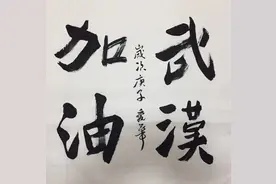 武漢
加油
歲次庚子